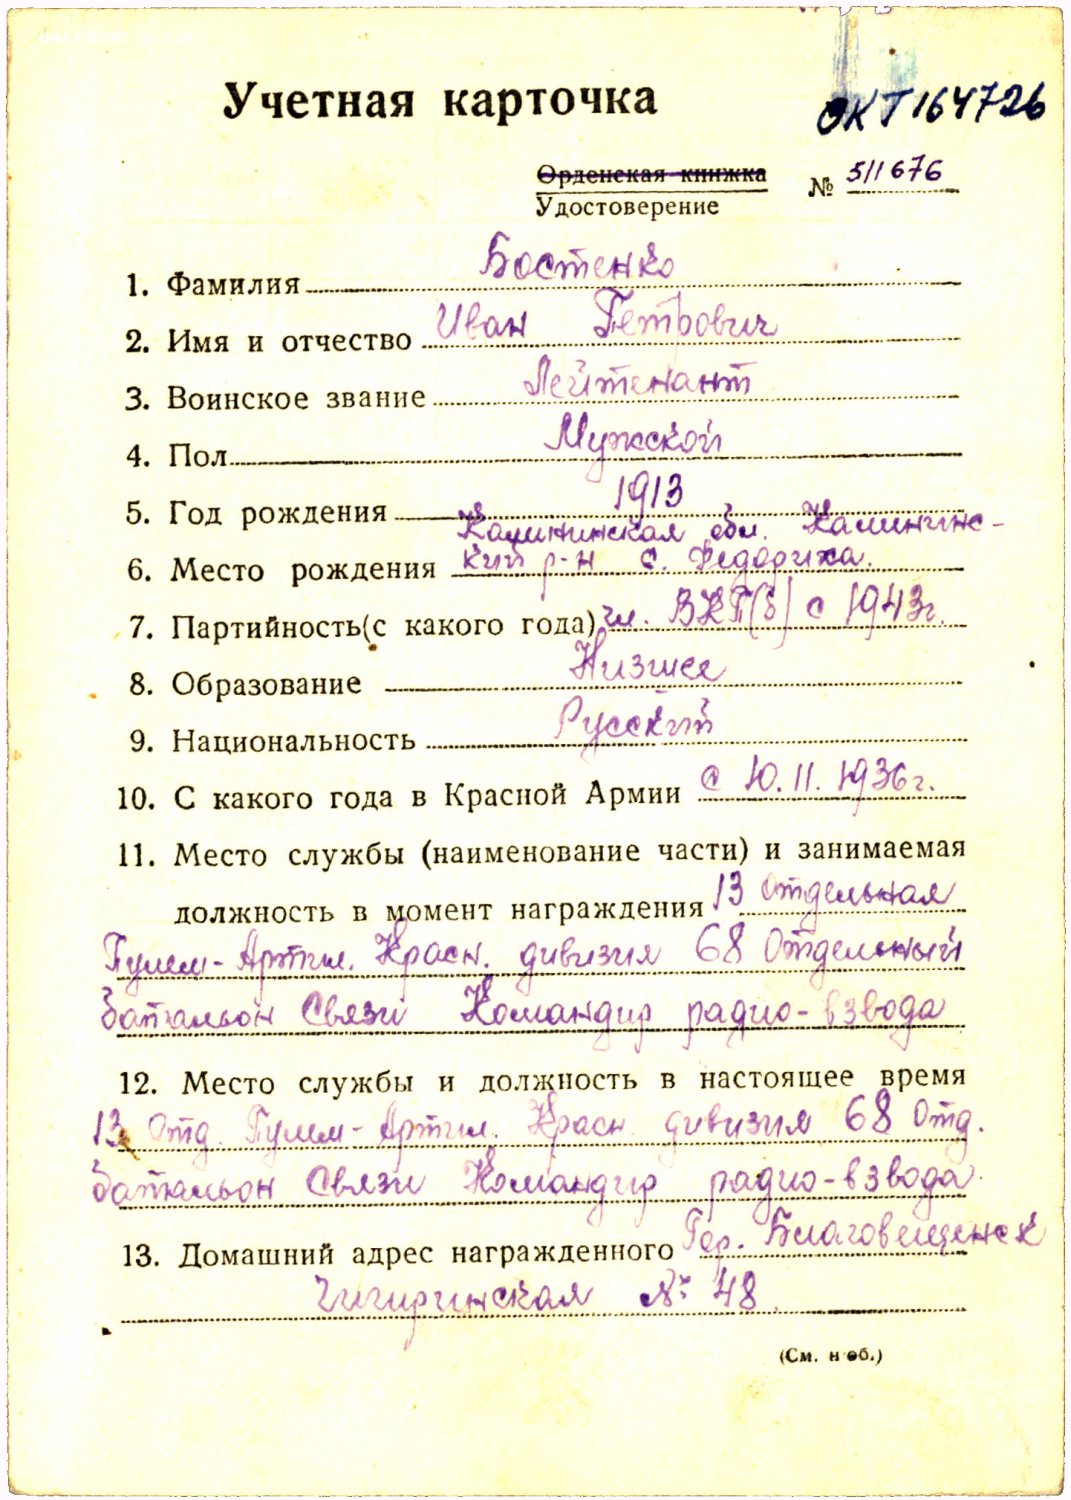 Учетная карточка
ОКТ 164726
Орденская книжка
Удостоверение
№ 511676
1. Фамилия Бостенко
2. Имя и отчество Иван Петрович
3. Воинское звание Лейтенант
4. Пол Мужской
5. Год рождения 1913
Калининская обл. Калининс-
6. Место рождения кий р-н с. Федориха.
7. Партийность(с какого года) чл. ВКП(б) с 1943г.
8. Образование Низшее
9. Национальность Русский
10. С какого года в Красной Армии с 10.11.1936г.
11. Место службы (наименование части) и занимаемая
должность в момент награждения 13 Отдельная
Пулем-Артил. Красн. дивизия 68 Отдельный
батальон Связи Командир радио-взвода
12. Место службы и должность в настоящее время
13 Отд. Пулем-Артил. Красн. дивизия 68 Отд.
батальон Связи Командир радио-взвода.
13. Домашний адрес награжденного Гор. Благовещенск
Чигиринская № 48.
(См. н об.)